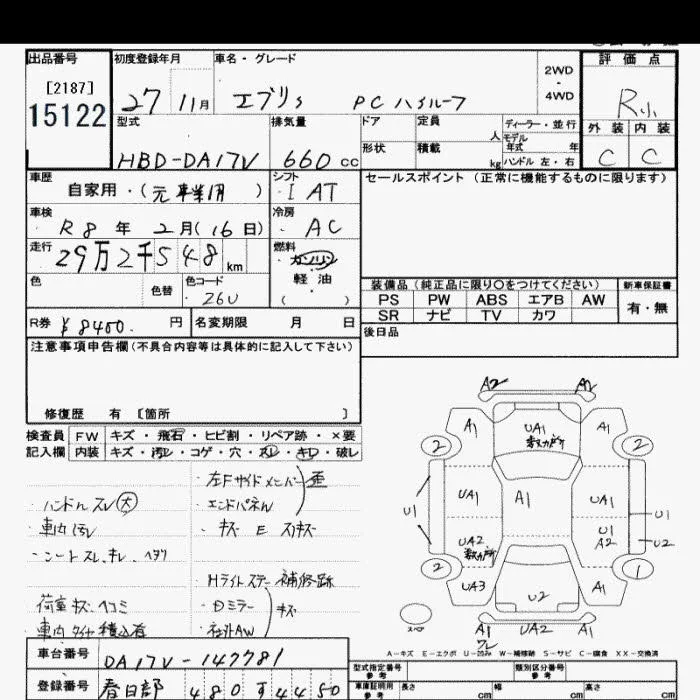 出品番号
[2187]
15122
初度登録年月
27 11月
車名・グレード
エブリィ PCハイルーフ
2WD
・
4WD
評価点
R小
外装 内装
C C
型式
HBD-DA17V
排気量
660 cc
ドア 定員 人
形状 積載 kg
ディーラー・並行
モデル
年式 年
ハンドル 左・右
車歴
自家用・(元事業用 )
シフト
I AT
セールスポイント (正常に機能するものに限ります)
車検
R8 年 2月(16日)
冷房
AC
走行
29万2千548 km
燃料
ガソリン
軽油
( )
色
色替
色コード
26U
装備品(純正品に限り○をつけてください) 新車保証書
PS PW ABS エアB AW 有・無
SR ナビ TV カワ
R券 ¥8400. 円
名変期限 月 日
後日品
注意事項申告欄(不具合内容等は具体的に記入して下さい)
修復歴 有 [箇所 ]
検査員 FW キズ・飛石・ヒビ割・リペア跡・×要
記入欄 内装 キズ・汚レ・コゲ・穴・スレ・キレ・破レ
左Fサイドメンバー 歪
・ハンドルスレ 大
・エンドパネル
・車内汚レ
・キズ E スリキズ
・シートスレ、キレ、ヘタリ
Hライトステー補修跡
荷室キズ、ヘコミ
・Dミラー キズ
・車内タイヤ積込有
・社外AW
A2 A2
A1 UA1 A1
2 複数カ所 2
UA1 A1 UA1
U1 U1
U1
UA2 A2 U2
複数カ所
2 1
UA3 U2 A1
スペア
A1 UA2 A1
ワレ
A-キズ E-エクボ U-凹み W-補修跡 S-サビ C-腐食 XX-交換済
車台番号
DA17V-147781
型式指定番号 類別区分番号
参考 参考
登録番号
春日部 480 す 4450
車庫証明用 長さ 幅 高さ
参考 cm cm cm